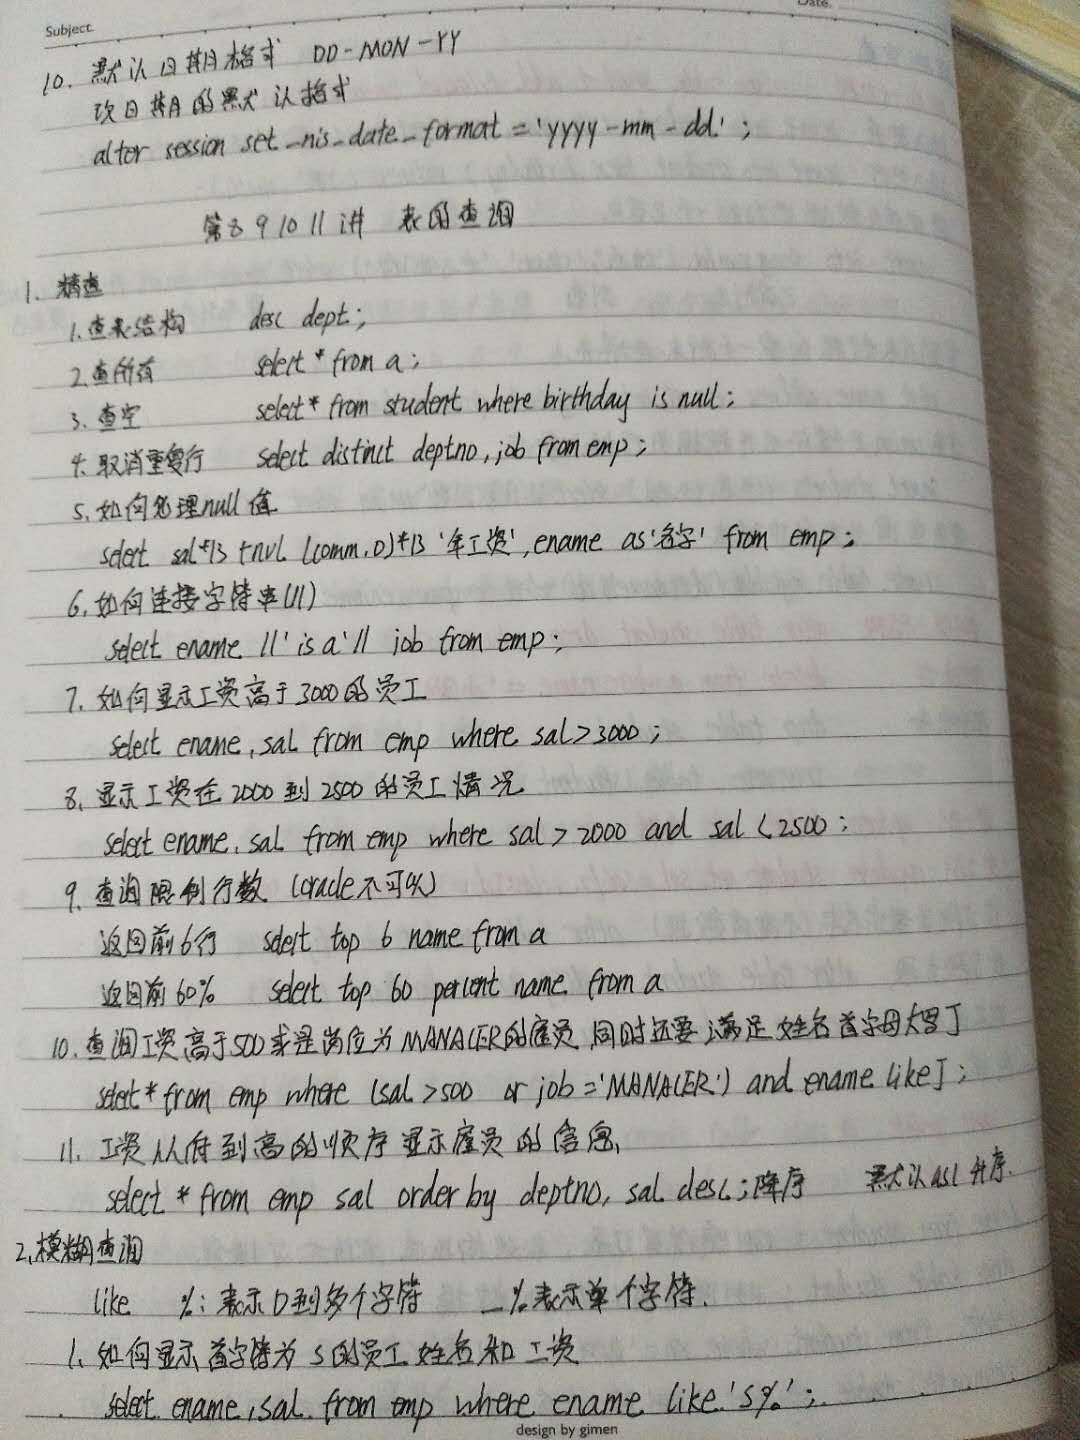 Subject.
Date.
10. 默认日期格式 DD-MON-YY
改日期的默认格式
alter session set_nis_date_format = 'yyyy-mm-dd';
第8 9 10 11讲 表的查询
1. 精查
1. 查表结构 desc dept;
2. 查所有 select * from a;
3. 查空 select * from student where birthday is null;
4. 取消重复行 select distinct deptno, job from emp;
5. 如何处理null值
select sal*13 + nvl (comm, 0)*13 '年工资', ename as '名字' from emp;
6. 如何连接字符串(||)
select ename ||' is a'|| job from emp;
7. 如何显示工资高于3000的员工
select ename, sal from emp where sal>3000;
8. 显示工资在2000到2500的员工情况
select ename, sal from emp where sal > 2000 and sal < 2500;
9. 查询限制行数 (oracle不可以)
返回前6行 select top 6 name from a
返回前60% select top 60 percent name from a
10. 查询工资高于500或是岗位为MANAGER的雇员,同时还要满足姓名首字母大写J
select * from emp where (sal >500 or job ='MANAGER') and ename like J;
11. 工资从低到高的顺序显示雇员的信息,
select * from emp sal order by deptno, sal desc; 降序 默认asc升序.
2. 模糊查询
like %: 表示0到多个字符 _%表示单个字符.
1. 如何显示首字符为S的员工姓名和工资
select ename, sal from emp where ename like 'S%';
design by gimen